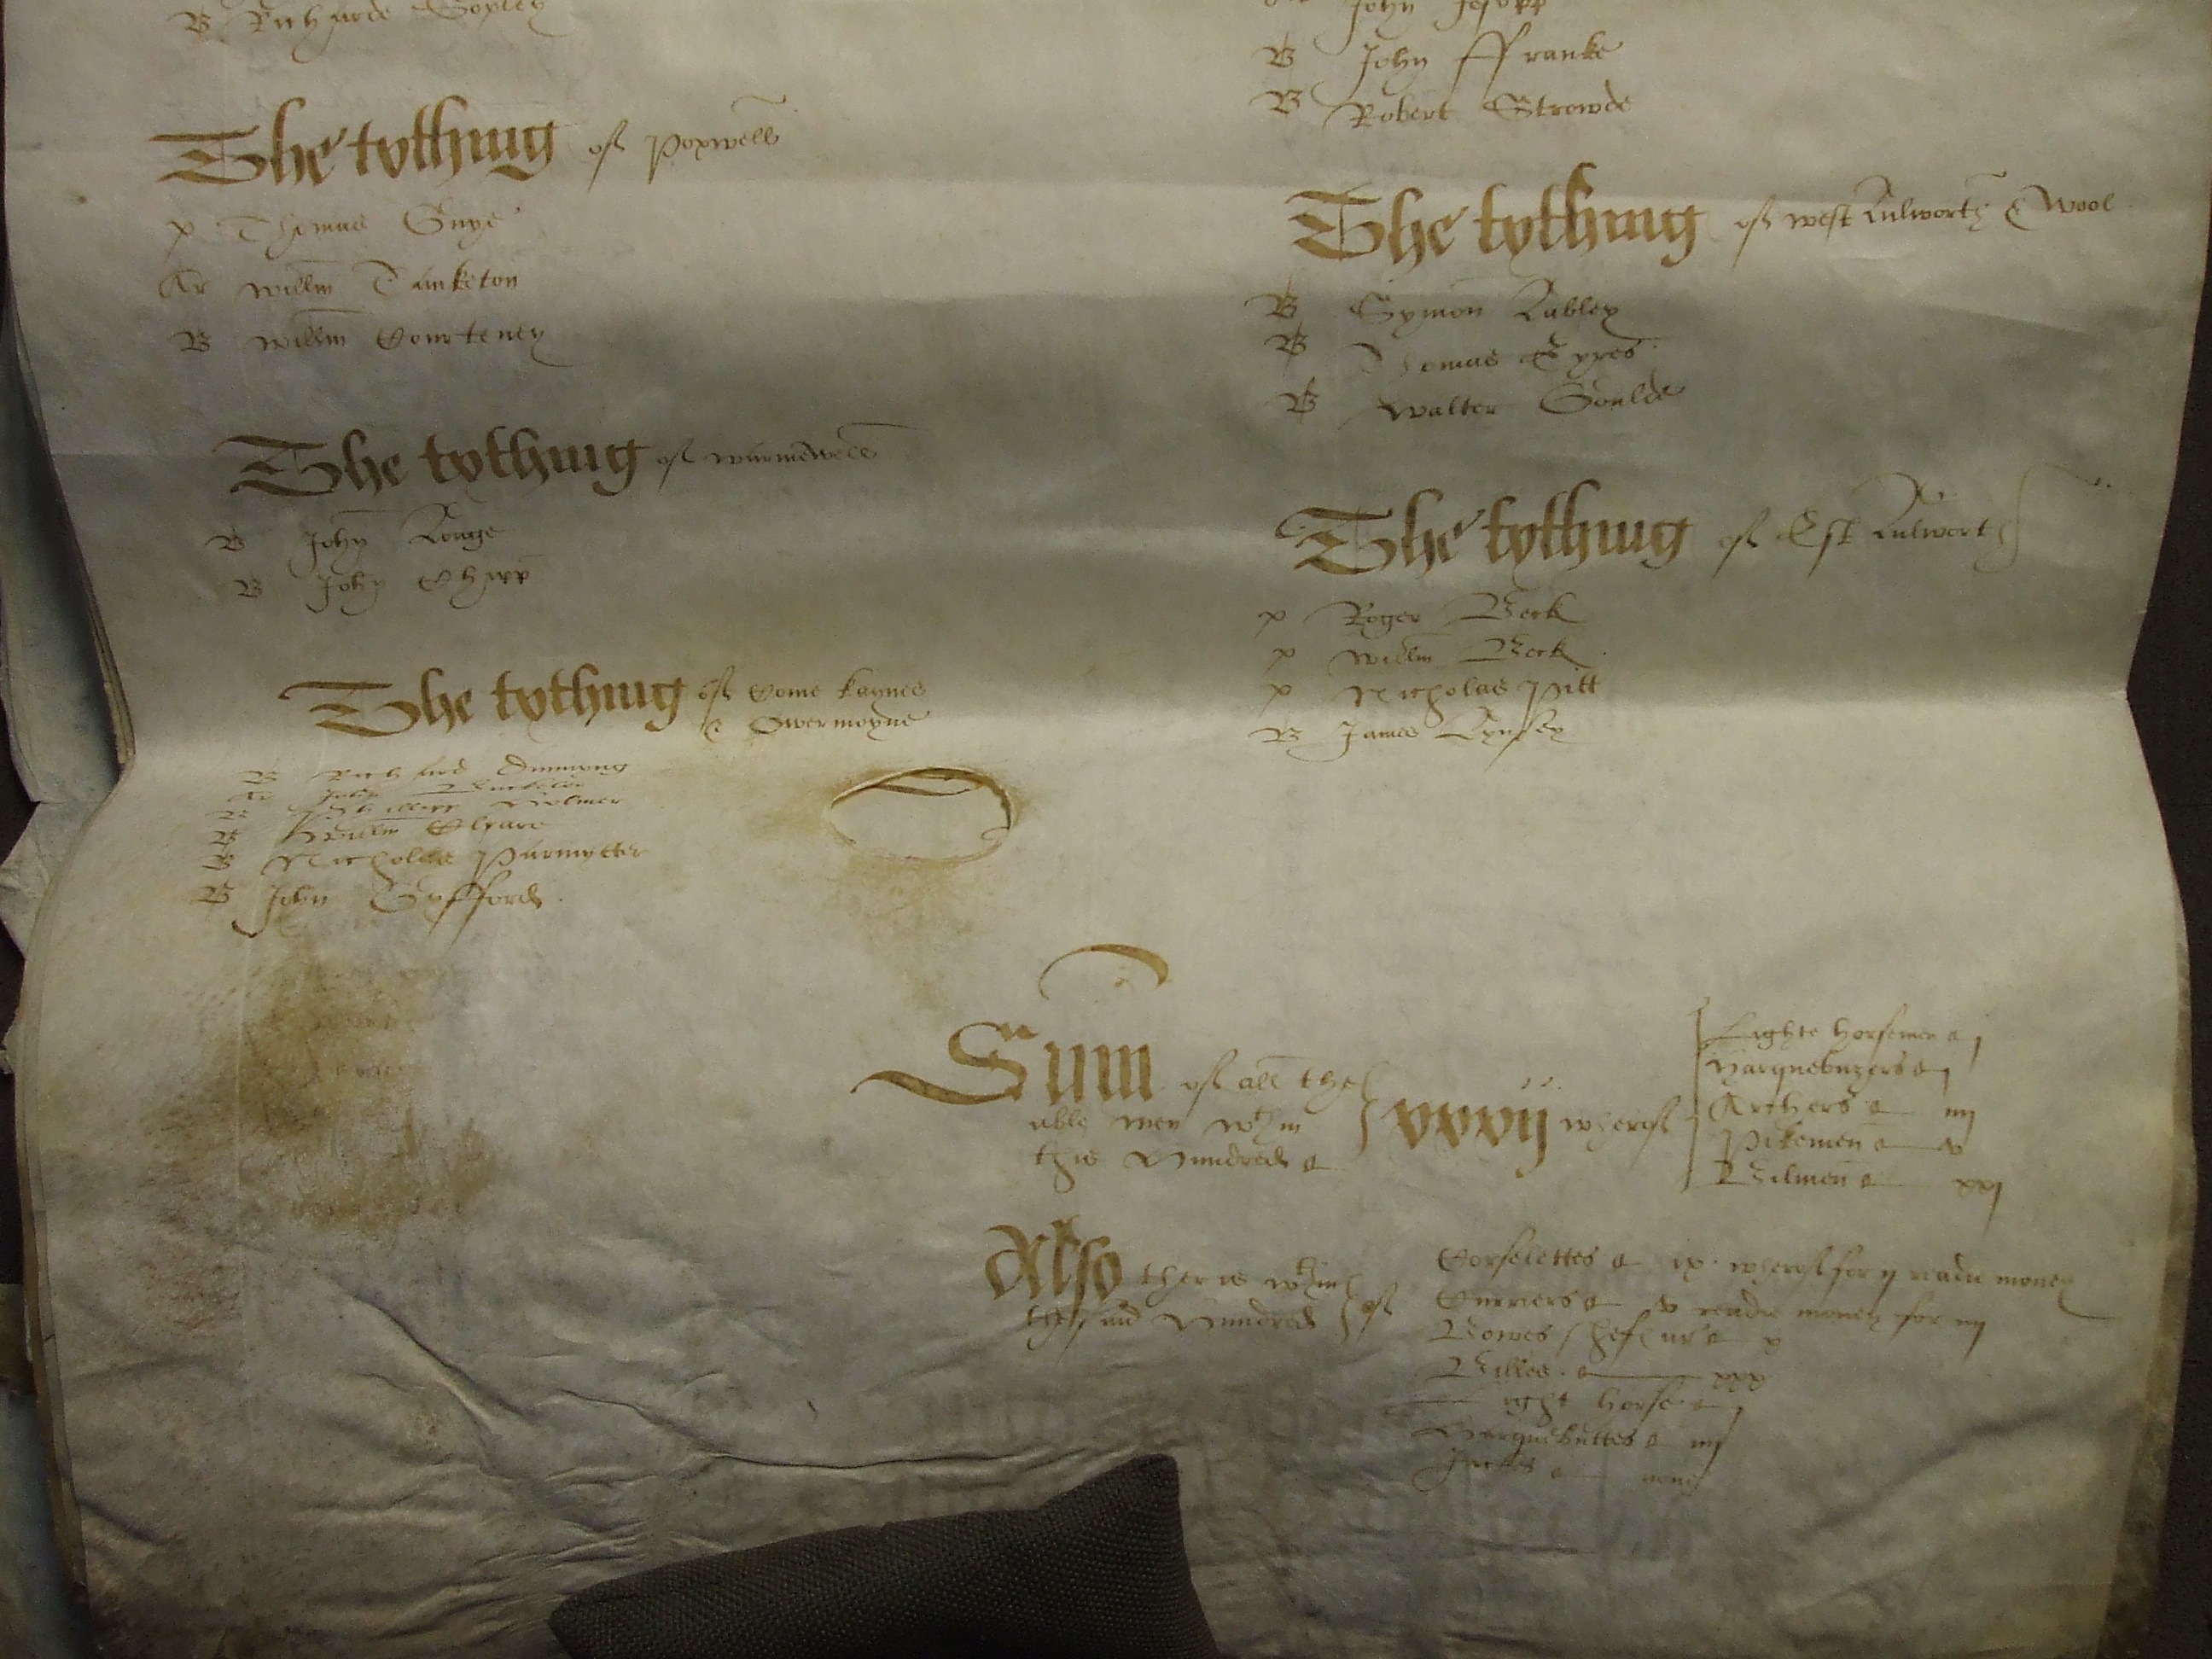 B Richarde Sopley
The tything of Poxwell
p Thomas Guye
Ar Willm Tanketon
B Willm Courteney
The tything of Warmewell
B John Longe
B John Chipp
The tything of Come kaynes
& Owermoyne
B Richard
Ar John
B Phillipp Wolmer
B Willm
B Nicholas Parmytter
B John Gyfford
John Jesopp
B John ffranke
B Robert Strowde
The tything of West Lulworth & Wool
B Symon Labley
B Thomas Eyres
B Walter Goulde
The tything of Est Lulworth
p Roger Beck
p Willm Beck
p Nicholas Pitt
B James Lynsey
Sum of all the
able men wthin
this Hundred
xxxij wherof
Lighte horsemen j
Harquebuzers j
Archers iiij
Pikemen v
Bilmen xxj
Also ther is wthin
the said Hundred of
Corselettes ix wherof for ij readie money
Curriers v readie money for iiij
Bowes shef arr x
Billes xxx
Light horse j
Harquebuttes iiij
Jackes none